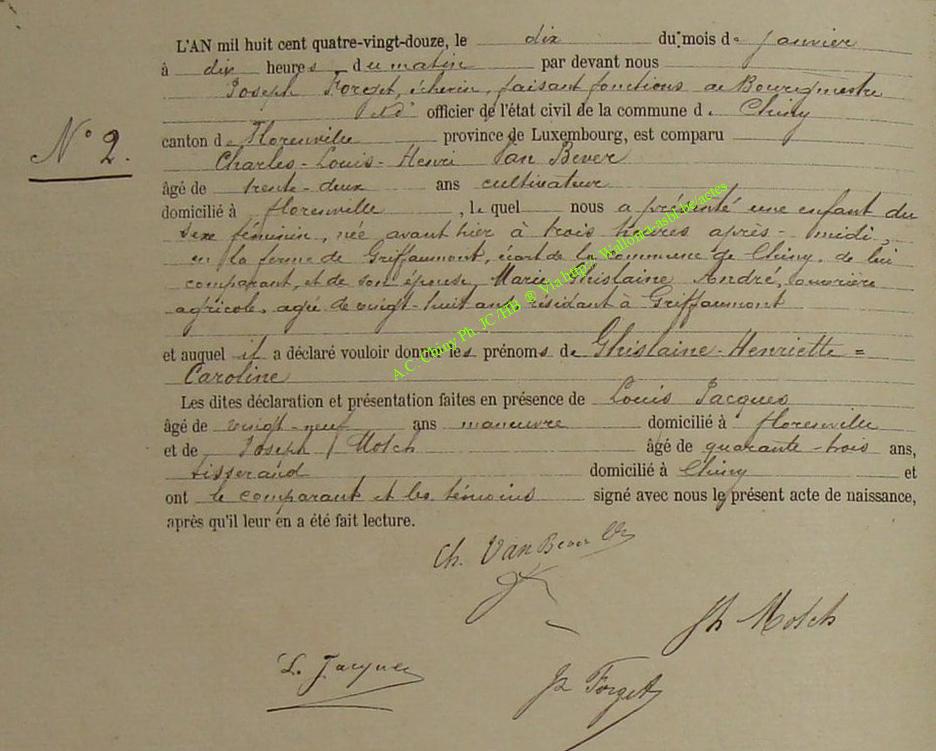 L'AN mil huit cent quatre-vingt-douze, le dix du mois de janvier
à dix heures du matin par devant nous
Joseph Forget, échevin, faisant fonctions de Bourgmestre
officier de l'état civil de la commune de Chiny
canton de Florenville province de Luxembourg, est comparu
N° 2.
Charles-Louis-Henri Van Bever
âgé de trente-deux ans cultivateur
domicilié à florenville, lequel nous a présenté une enfant du
sexe féminin, née avant hier à trois heures après-midi,
en la ferme de Griffaumont, écart de la commune de Chiny, de lui
comparant, et de son épouse, Marie Ghislaine André, ouvrière
agricole, agée de vingt-huit ans résidant à Griffaumont
et auquel il a déclaré vouloir donner les prénoms de Ghislaine-Henriette=
Caroline
Les dites déclaration et présentation faites en présence de Louis Jacques
âgé de vingt-neuf ans manœuvre domicilié à florenville
et de Joseph Motch âgé de quarante-trois ans,
tisserand domicilié à Chiny et
ont le comparant et les témoins signé avec nous le présent acte de naissance,
après qu'il leur en a été fait lecture.
Ch. Van Bever
Jh Motch
L. Jacques
Jh Forget
A.C. Chiny Ph. JC /HB ® Via http:// Wallonia.asbl.be/actes